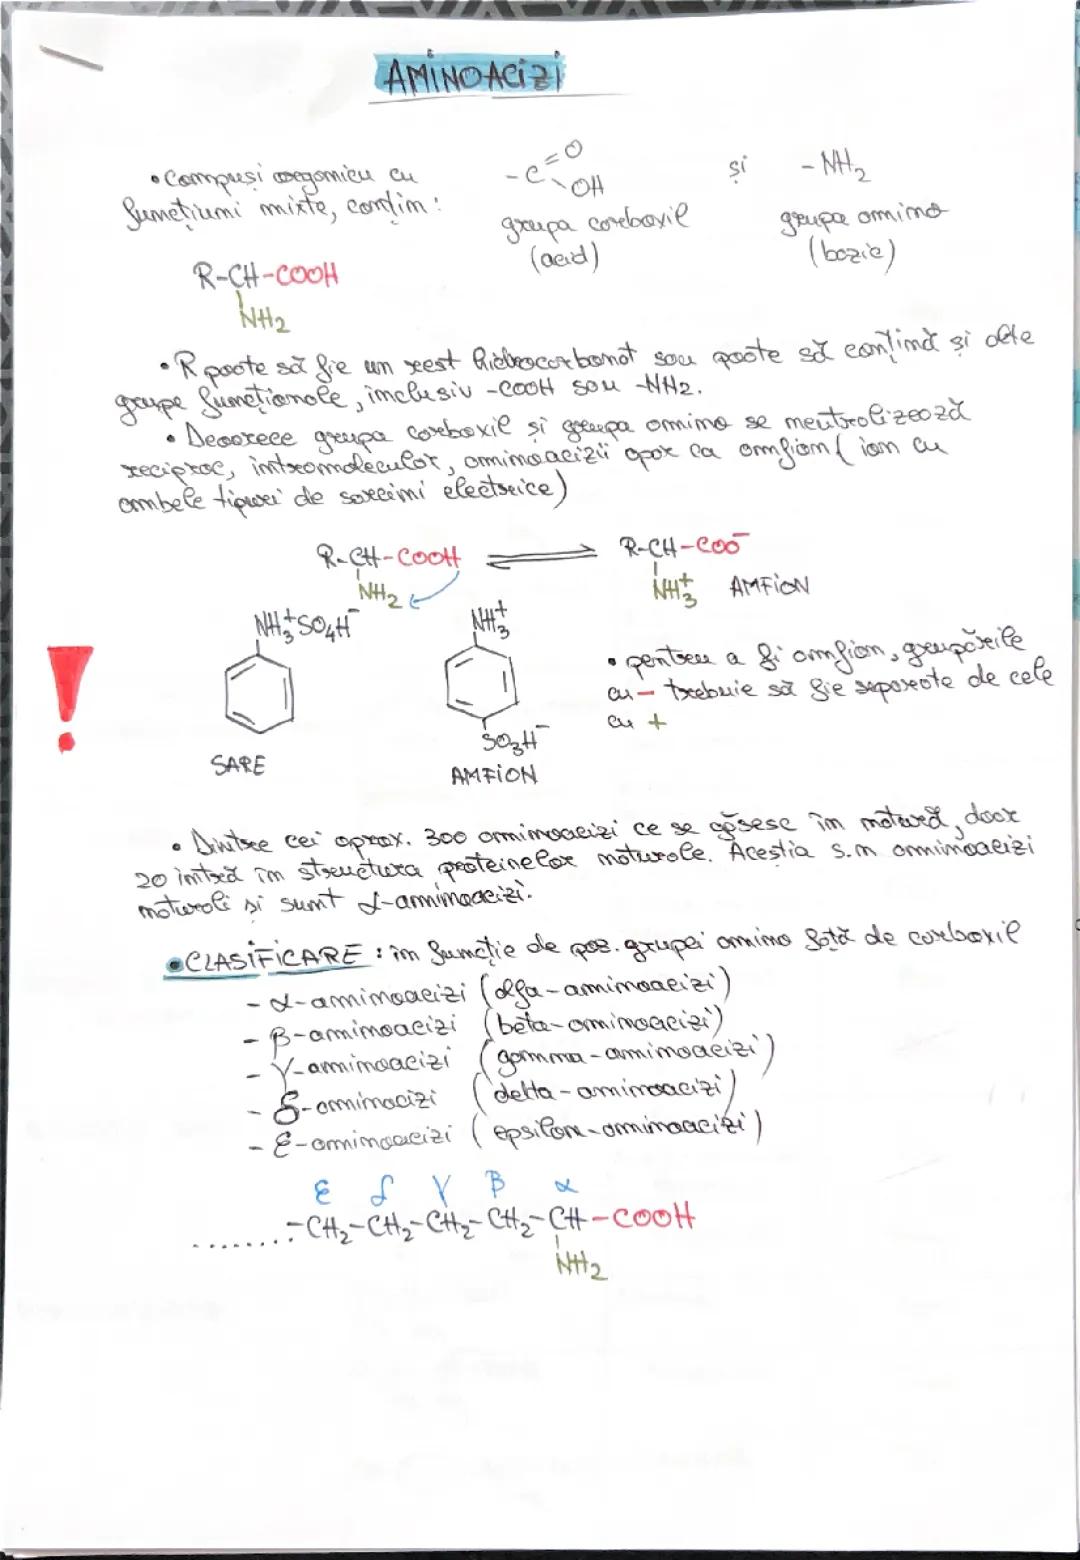 AMINOACIZI
• Compuși organici cu
funcțiuni mixte, conțin:
-C=O
\OH
și
-NH₂
grupa carboxil
(acid)
grupa amino
(bazic)
R-CH-COOH
NH₂
• R poate să fie un rest hidrocarbonat sau poate să conțină și alte
grupe funcționale, inclusiv -COOH sau -NH₂.
• Deoarece grupa carboxil și grupa amino se neutralizează
reciproc, intramolecular, aminoacizii apar ca amfion (ion cu
ambele tipuri de sarcini electrice)
R-CH-COOH ⇌ R-CH-COO⁻
NH₂
NH₃⁺ AMFION
NH₃⁺SO₄H⁻
NH₃⁺
• pentru a fi amfion, grupările
cu - trebuie să fie separate de cele
cu +
SO₃H⁻
SARE
AMFION
• Dintre cei aprox. 300 aminoacizi ce se găsesc în natură, doar
20 intră în structura proteinelor naturale. Aceștia s.n aminoacizi
naturali și sunt α-aminoacizi.
• CLASIFICARE: în funcție de poz. grupei amino față de carboxil
- α-aminoacizi (alfa-aminoacizi)
- β-aminoacizi (beta-aminoacizi)
- γ-aminoacizi (gamma-aminoacizi)
- δ-aminoacizi (delta-aminoacizi)
- ε-aminoacizi (epsilon-aminoacizi)
ε δ γ β α
........-CH₂-CH₂-CH₂-CH₂-CH-COOH
NH₂